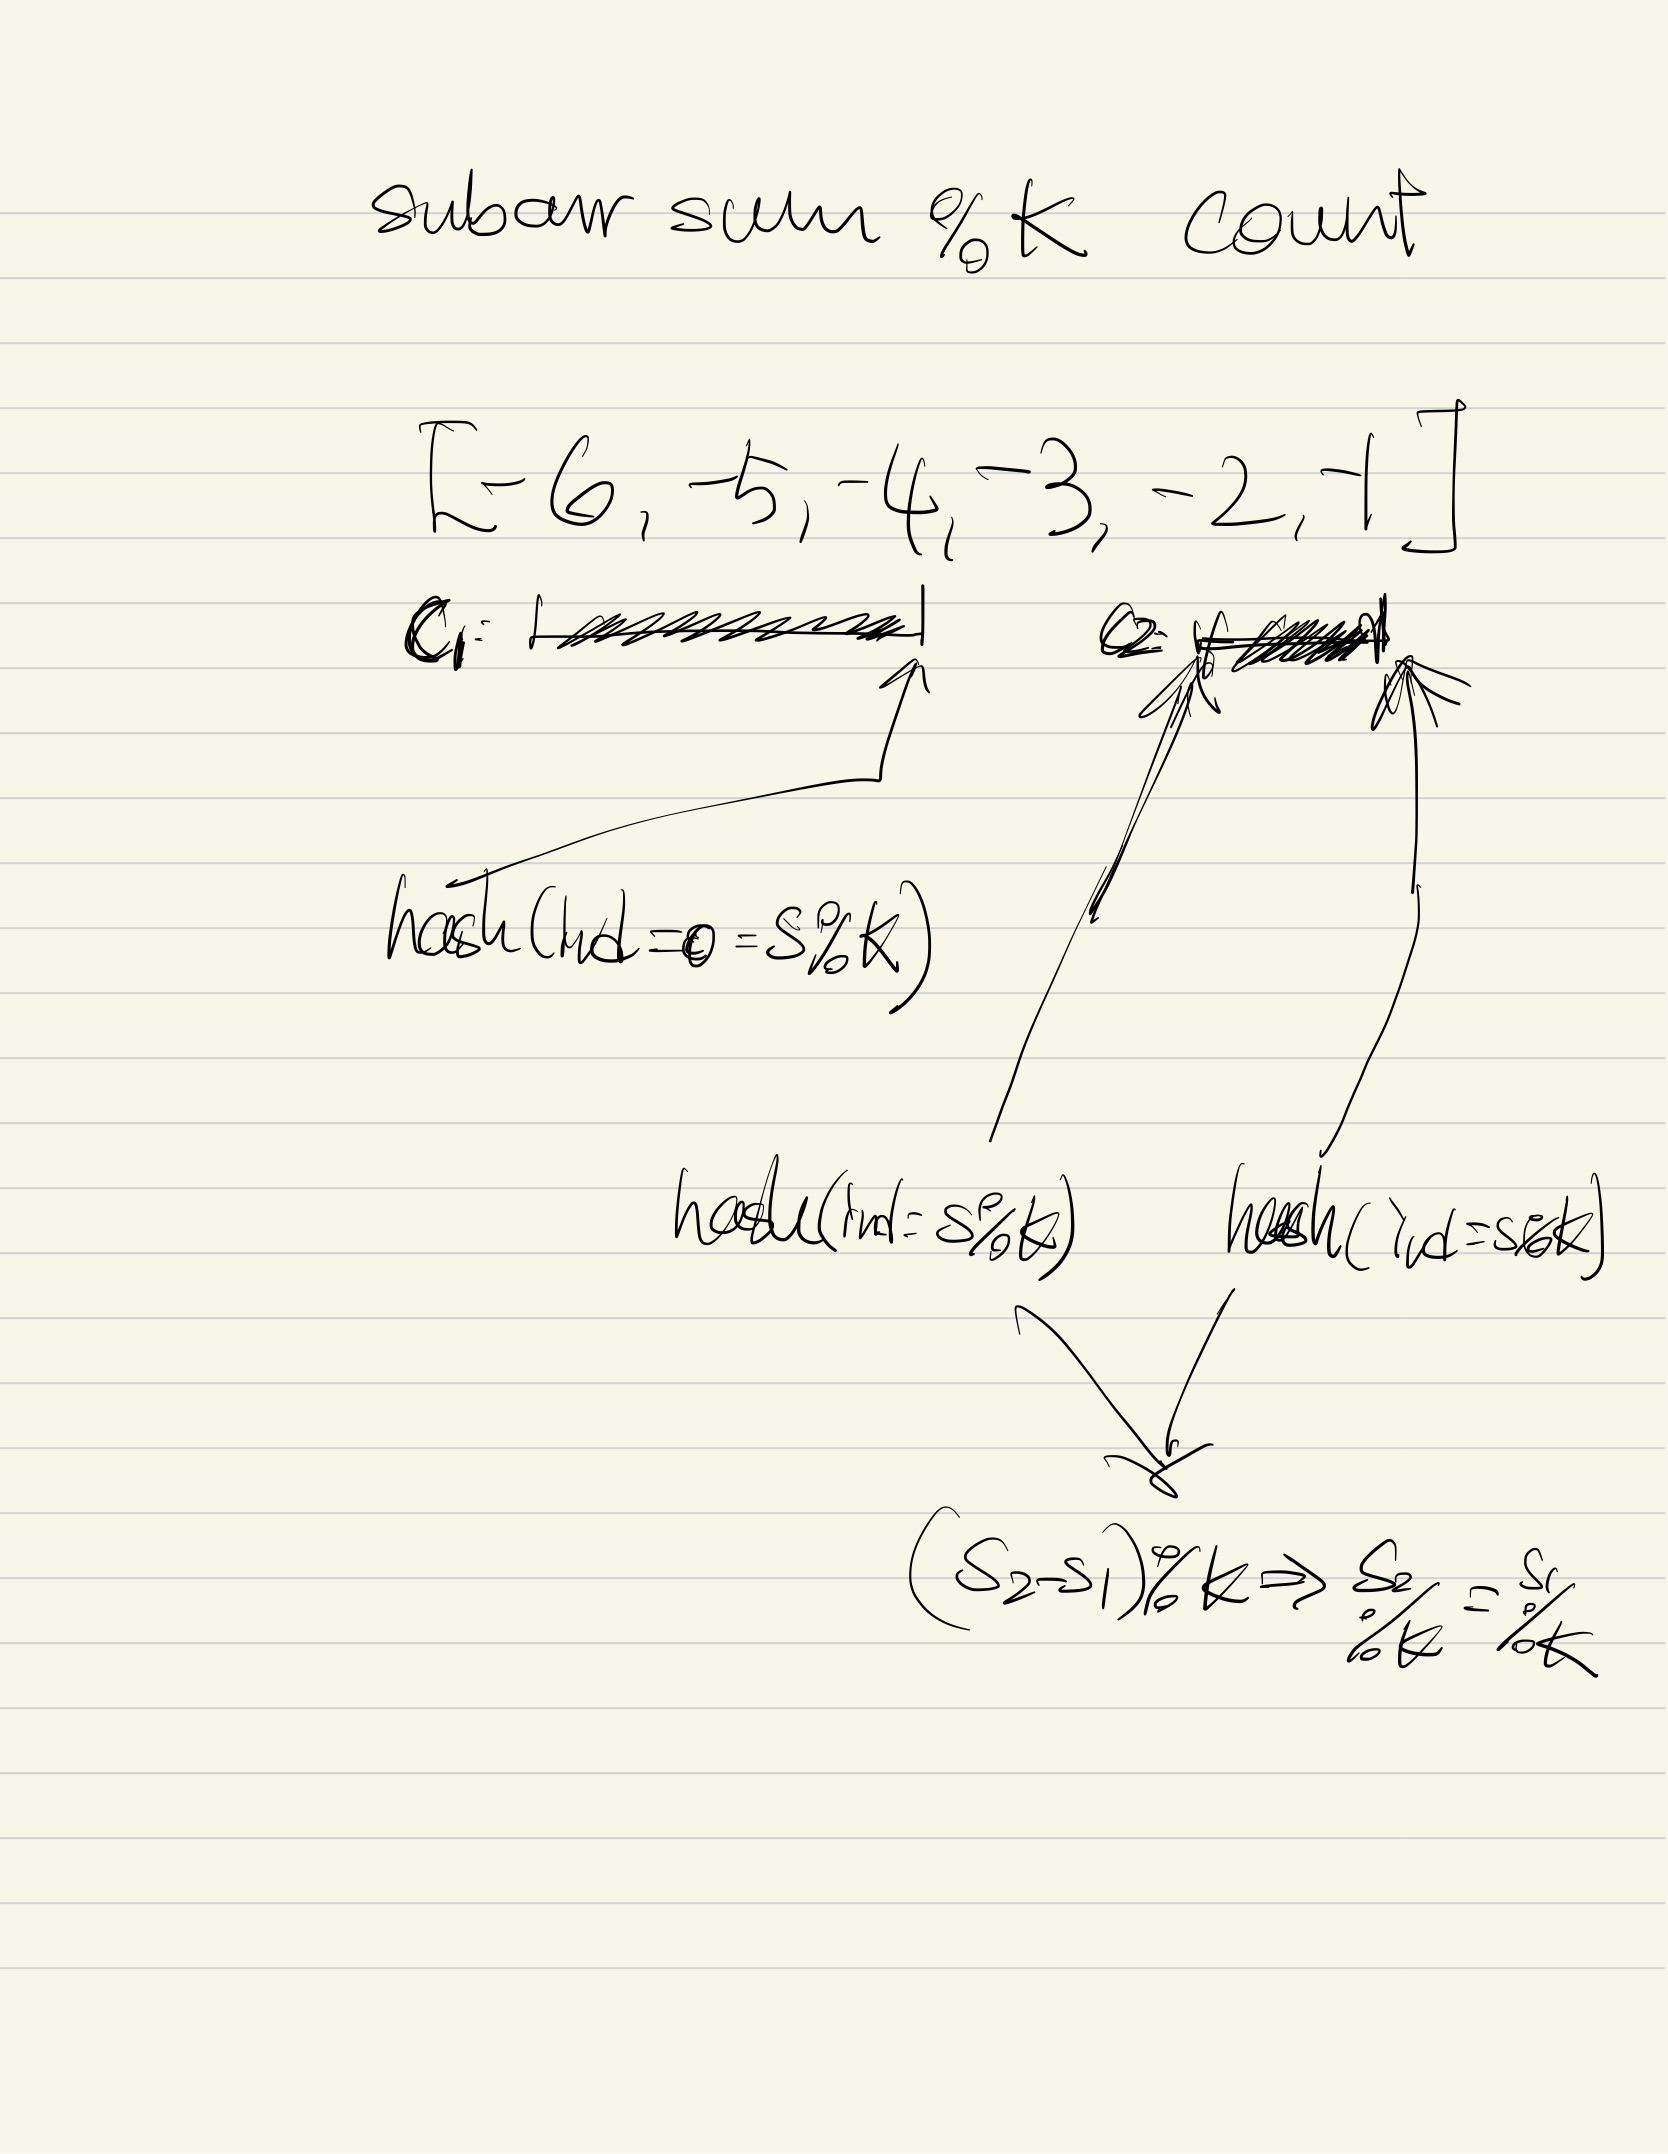 subarr sum %K count
[-6, -5, -4, -3, -2, -1]
C1: C2:
hash(ind=0=S%K)
hash(ind=S%K) hash(ind=S%K)
(S2-S1)%K => S2%K = S1%K